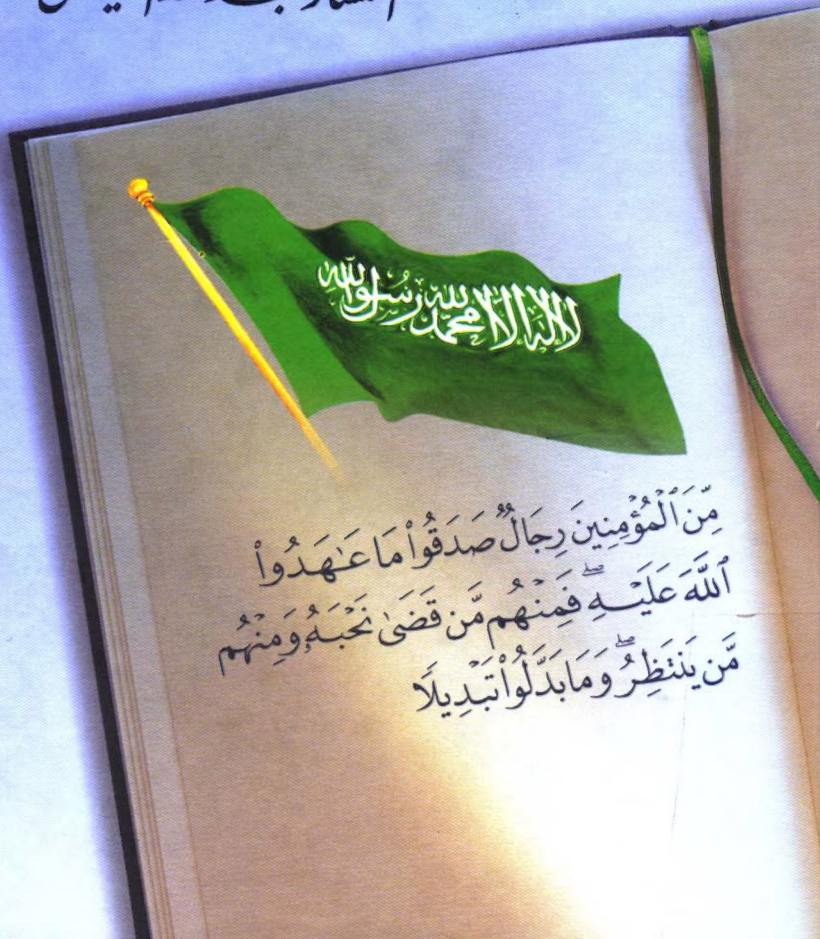 لا إله إلا الله محمد رسول الله
مِّنَ ٱلْمُؤْمِنِينَ رِجَالٌ صَدَقُوا۟ مَا عَـٰهَدُوا۟
ٱللَّهَ عَلَيْهِ ۖ فَمِنْهُم مَّن قَضَىٰ نَحْبَهُۥ وَمِنْهُم
مَّن يَنتَظِرُ ۖ وَمَا بَدَّلُوا۟ تَبْدِيلًا